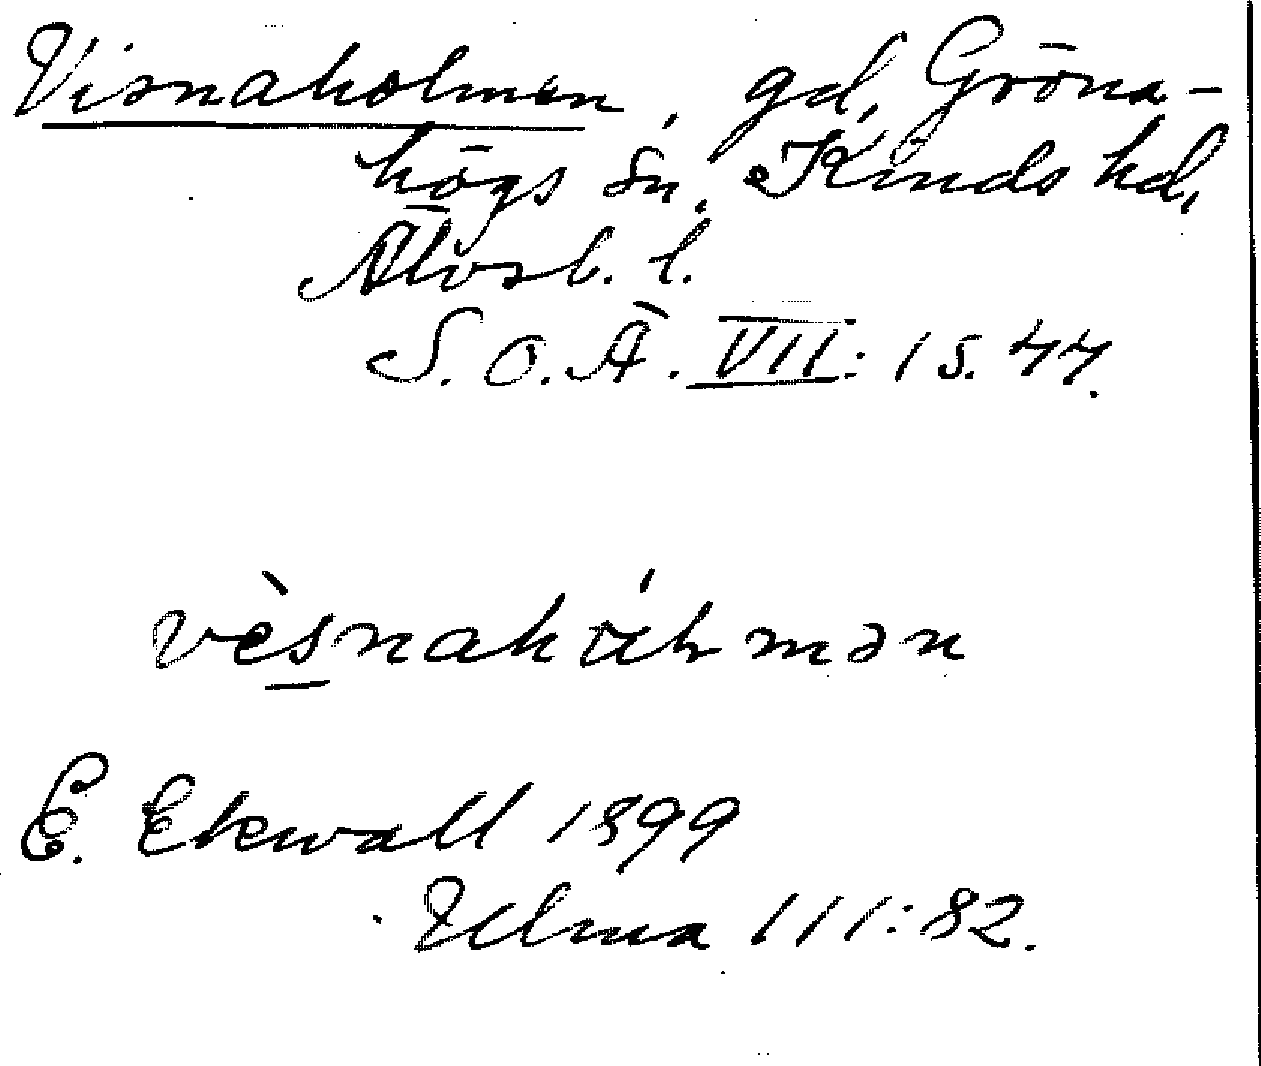 Visnaholmen, gd, Gröna-
högs sn, Kinds hd,
Älvsb. l.
S. O. Ä. VII: 1 s. 44.
vèsnahɷ́lmən
E. Ekwall 1899
Ulma 111:82.